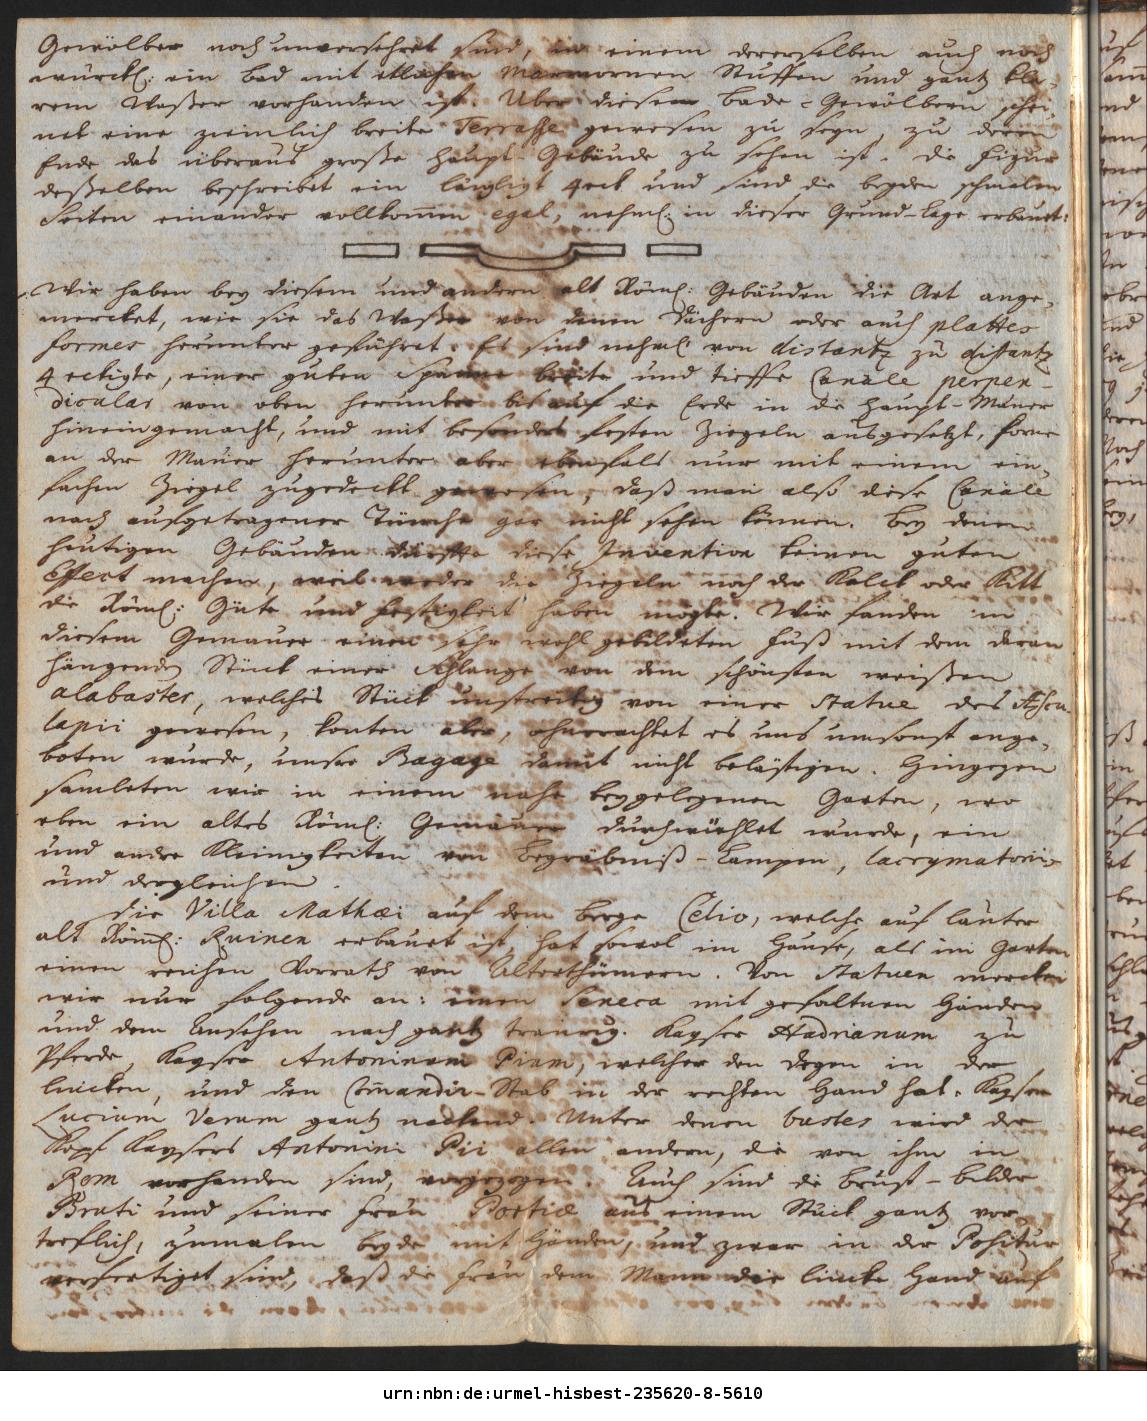 Gewölber noch unversehret sind, in einem dererselben auch noch
würckl: ein Bad mit etlichen Marmornen Stuffen und gantz kla-
rem Waßer vorhanden ist. Über diesen Bade-Gewölbern schei-
net eine ziemlich breite Terrasse gewesen zu seyn, zu deren
Ende das überaus große Haupt-Gebäude zu sehen ist. Die Figur
deßelben beschreibet ein längligt 4eck und sind die beyden schmalen
Seiten einander vollkom̄en egal, nehml: in dieser Grund-Lage erbauet:
Wir haben bey diesem und andern alt Röml: Gebäuden die Art ange-
mercket, wie sie das Waßer von denen Dächern oder auch plattes
formes herunter geführet. Es sind nehml: von distantz zu distantz
4eckigte, einer guten Spanne breite und tieffe Canale perpen-
dicular von oben herunter bis auf die Erde in die Haupt-Mauer
hineingemacht, und mit besonders festen Ziegeln ausgesetzt, forne
an der Mauer herunter aber ebenfals nur mit einem ein-
fachen Ziegel zugedeckt gewesen, daß man also diese Canäle
nach aufgetragener Tünche gar nicht sehen können. Bey denen
heutigen Gebäuden dürffte diese Invention keinen guten
Effect machen, weil weder die Ziegeln noch der Kalck oder Kitt
die Röml: Güte und Festigkeit haben mögte. Wir fanden in
diesem Gemäuer einen sehr wohl gebildeten Fuß mit dem daran
hangenden Stück einer Schlange von dem schönsten weißen
alabaster, welches Stück unstreitig von einer Statue des Æscu-
lapii gewesen, konten aber, ohnerachtet es uns umsonst ange-
boten wurde, unsre Bagage damit nicht belästigen. Hingegen
samleten wir in einem nahe beygelegenen Garten, wo
eben ein altes Röml: Gemäuer durchwühlet wurde, ein
und andre Kleinigkeiten von Begräbniß-Lampen, lacrymatoriis
und dergleichen.
Die Villa Mathæi auf dem Berge Celio, welche auf lauter
alt Röml: Ruinen erbauet ist, hat sowol im Hause, als im Garten
einen reichen Vorrath von Alterthümern. Von Statuen mercken
wir nur folgende an: einen Seneca mit gefaltnen Händen
und dem Ansehen nach gantz traurig. Kayser Hadrianum zu
Pferde, Kayser Antoninum Pium, welcher den Degen in der
lincken, und den Com̄andir-Stab in der rechten Hand hat. Kayser
Lucium Verum gantz nackend. Unter denen bustes wird der
Kopf Kaysers Antonini Pii allen andern, die von ihm in
Rom vorhanden sind, vorgezogen. Auch sind die Brust-Bilder
Bruti und seiner Frau Portiæ aus einem Stück gantz vor-
treflich, zumalen beyde mit Händen, und zwar in der Positur
verfertiget sind, daß die Frau dem Mann die lincke Hand auf
urn:nbn:de:urmel-hisbest-235620-8-5610